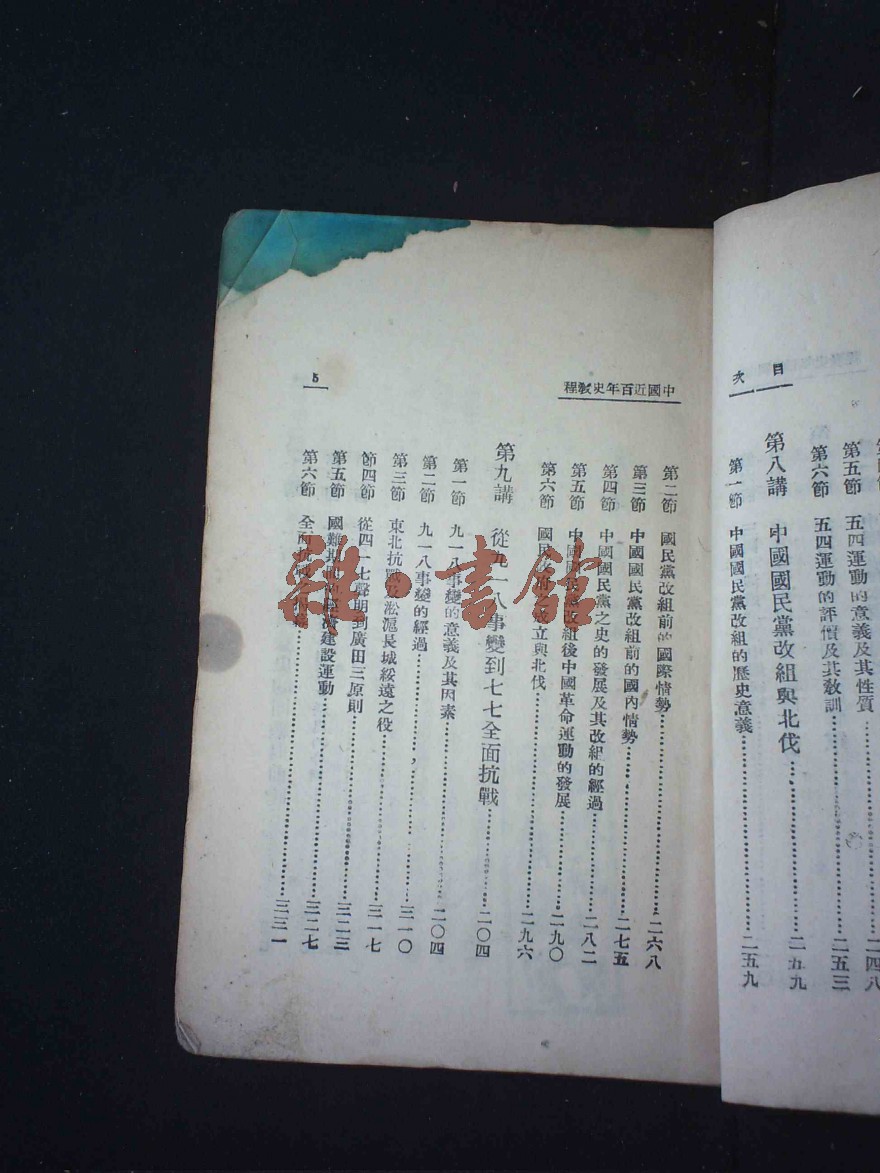 目次
第五節 五四運動的意義及其性質……二四八
第六節 五四運動的評價及其教訓……二五三
第八講 中國國民黨改組與北伐……二五九
第一節 中國國民黨改組的歷史意義……二五九
中國近百年史教程
5
第二節 國民黨改組前的國際情勢……二六八
第三節 中國國民黨改組前的國內情勢……二七五
第四節 中國國民黨之史的發展及其改組的經過……二八二
第五節 中國國民黨改組後中國革命運動的發展……二九〇
第六節 國民政府成立與北伐……二九六
第九講 從九一八事變到七七全面抗戰……二〇四
第一節 九一八事變的意義及其因素……二〇四
第二節 九一八事變的經過……三一〇
第三節 東北抗戰及淞滬長城綏遠之役……三一七
節四節 從四一七聲明到廣田三原則……三二三
第五節 國難期 建設運動……三二七
第六節 全面抗戰……三三一
雜·書館